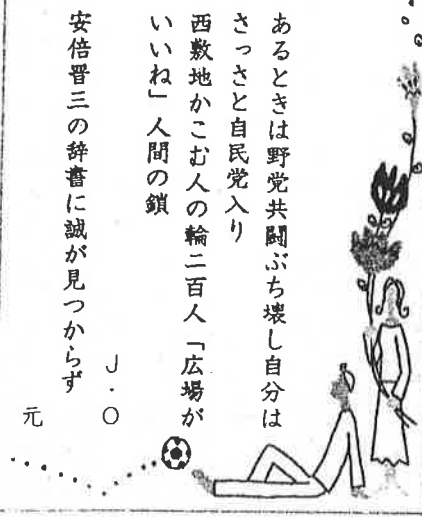 あるときは野党共闘ぶち壊し自分は
さっさと自民党入り
西敷地かこむ人の輪二百人「広場が
いいね」人間の鎖
J・O
安倍晋三の辞書に誠が見つからず
元